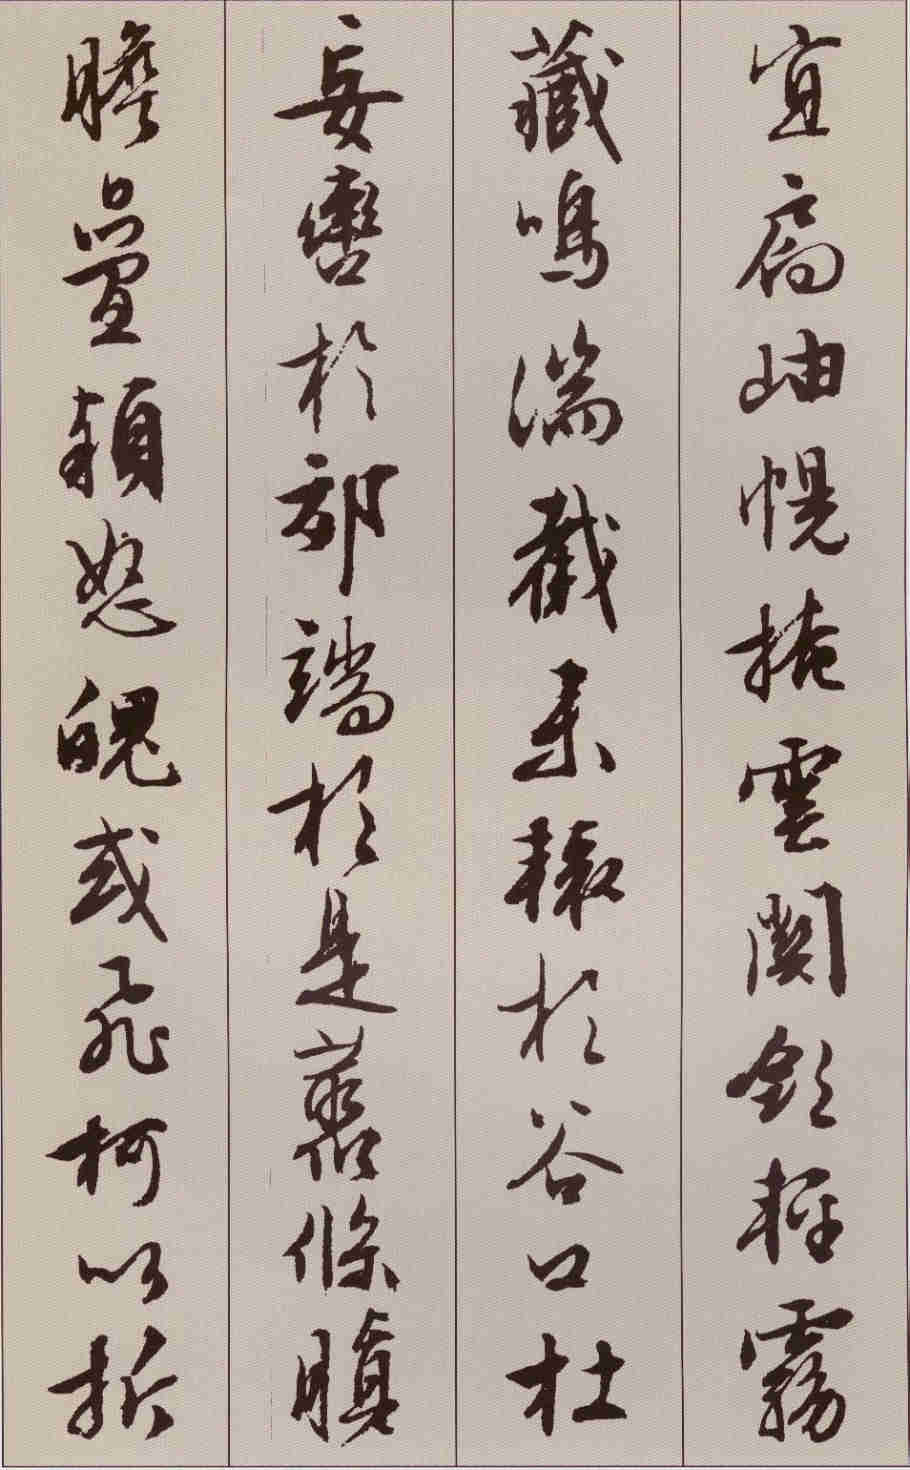 宜扃岫幌掩雲關斂輕霧
藏鳴湍截来轅於谷口杜
妄轡於郊端於是叢條瞋
膽疊穎怒魄或飛柯以折